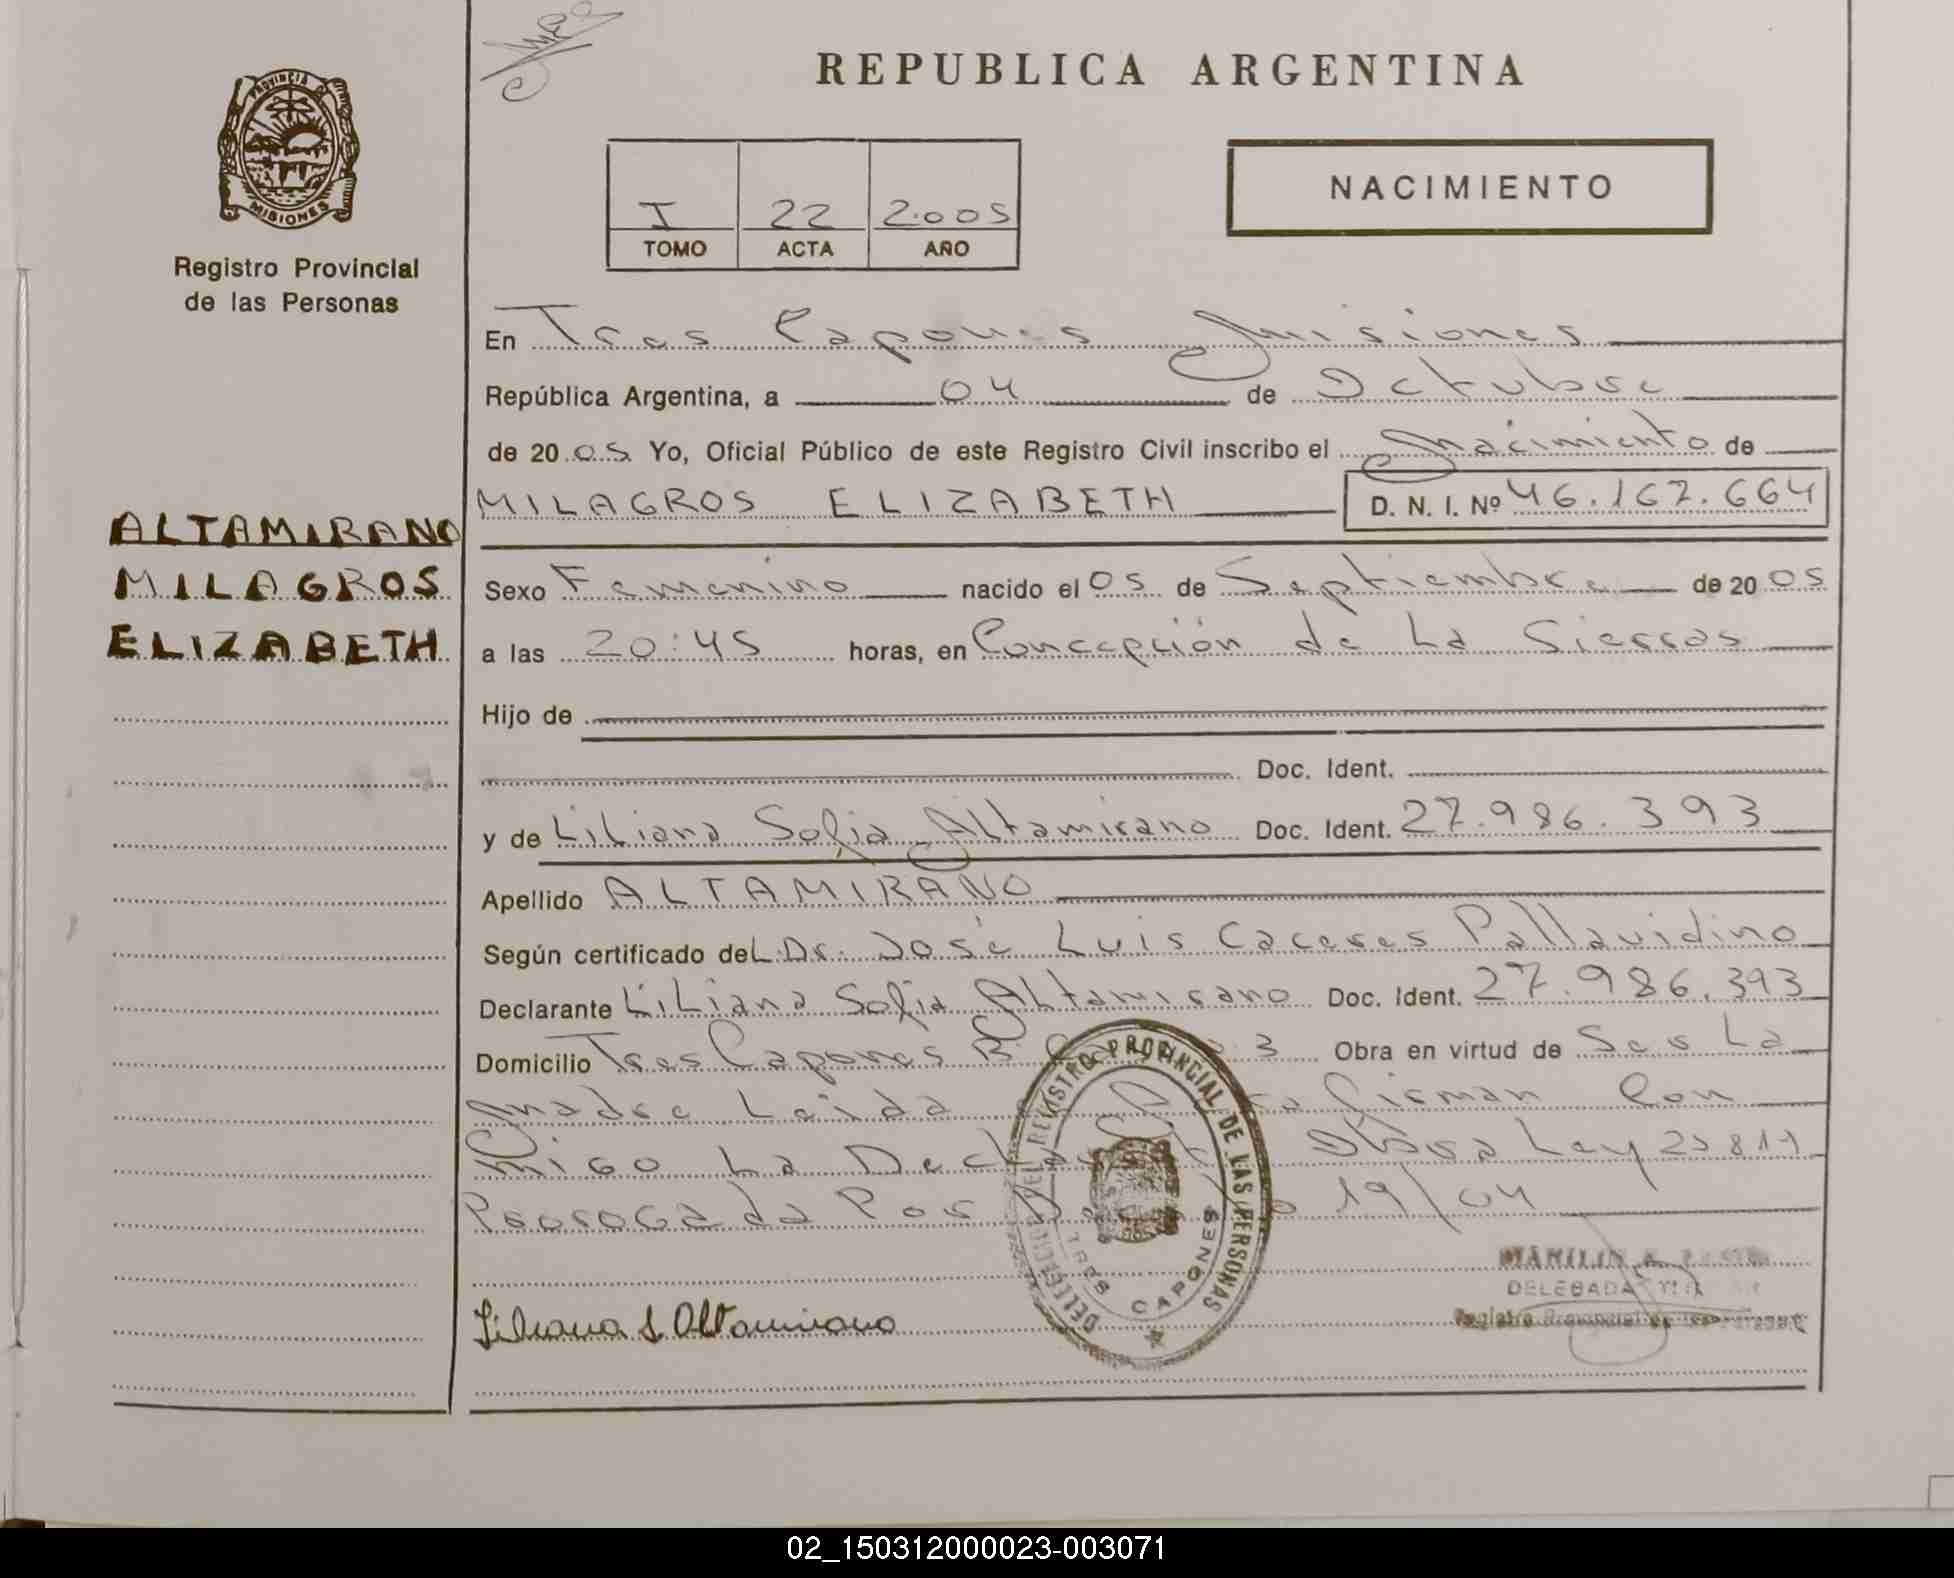 REPUBLICA ARGENTINA
PROVINCIA
MISIONES
Registro Provincial
de las Personas
I 22 2.005
TOMO ACTA AÑO
NACIMIENTO
En Tres Capones Misiones
República Argentina, a 04 de Octubre
de 20 05 Yo, Oficial Público de este Registro Civil inscribo el Nacimiento de
MILAGROS ELIZABETH D. N. I. Nº 46.167.664
ALTAMIRANO
MILAGROS
ELIZABETH
Sexo Femenino nacido el 05 de Septiembre de 20 05
a las 20:45 horas, en Concepción de La Sierras
Hijo de
Doc. Ident.
y de Liliana Sofia Altamirano Doc. Ident. 27.986.393
Apellido ALTAMIRANO
Según certificado del Dr. José Luis Caceres Pallavidino
Declarante Liliana Sofia Altamirano Doc. Ident. 27.986.393
Domicilio Tres Capones B. 3 Obra en virtud de Ser La
Madre Leida Firman Con
migo La Ley
Prorogada Por 19/04
DELEGACION DEL REGISTRO PROVINCIAL DE LAS PERSONAS
TRES CAPONES
DELEGADA
Registro Provincial de las Personas
Liliana S Altamirano
02_150312000023-003071